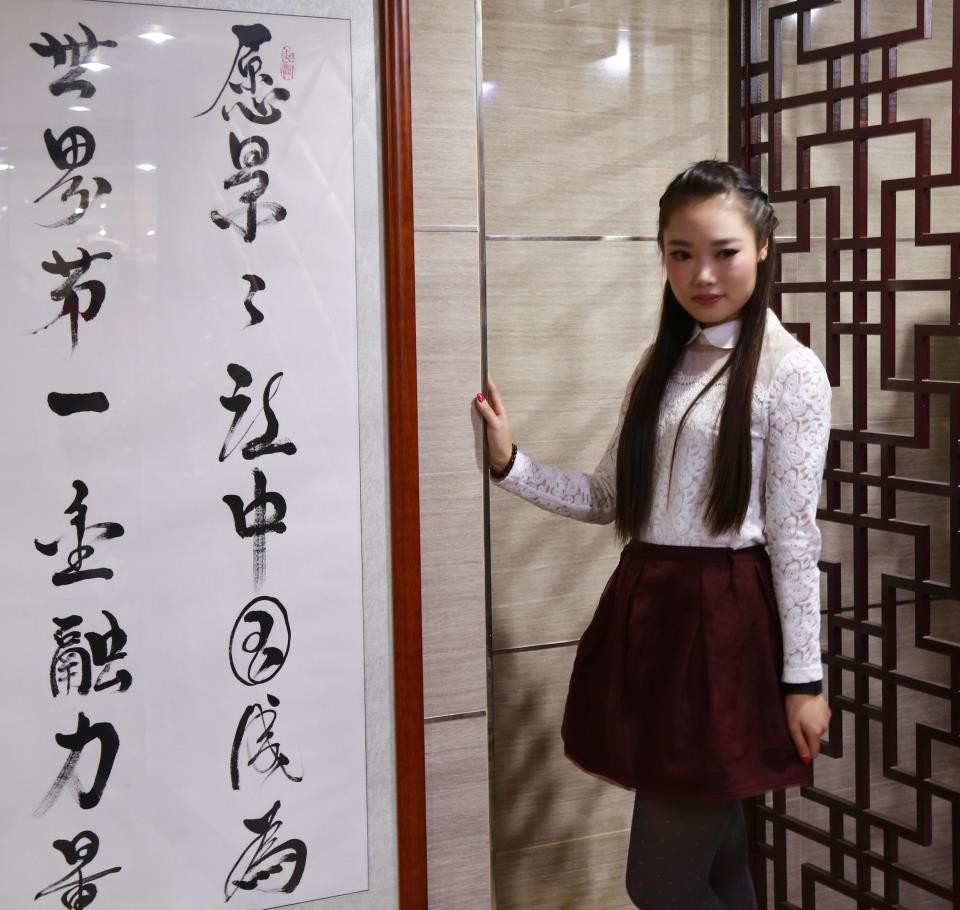 愿景：让中国成为
世界第一金融力量